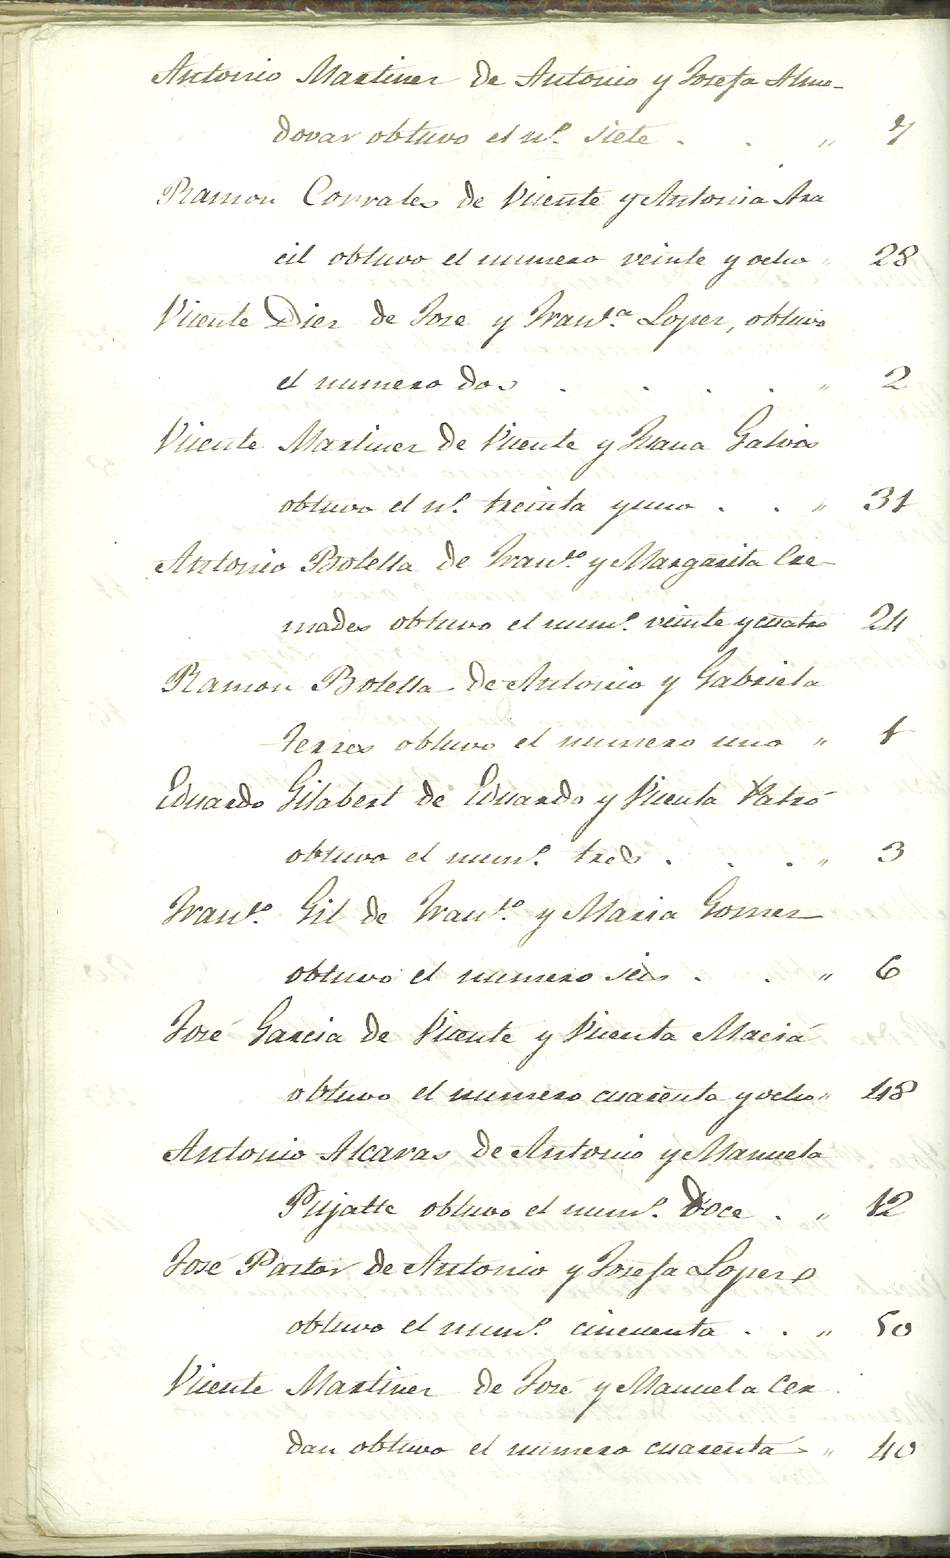 Antonio Martinez de Antonio y Josefa Almo-
dovar obtuvo el nº. siete . . " 7
Ramon Corrales de Vicente y Antonia Ara
cil obtuvo el numero veinte y ocho " 28
Vicente Diez de Jose y Franca. Lopez, obtuvo
el numero dos . . . " 2
Vicente Martinez de Vicente y Juana Galvis
obtuvo el nº. treinta y uno . . " 31
Antonio Botella de Franco. y Margarita Cre-
mades obtuvo el numº. veinte y cuatro 24
Ramon Botella de Antonio y Gabriela
Terres obtuvo el numero uno " 1
Eduardo Gilabert de Eduardo y Vicenta Patró
obtuvo el numº. tres . . . " 3
Franco. Gil de Franco. y Maria Gomez
obtuvo el numero seis . . " 6
José Garcia de Vicente y Vicenta Maciá
obtuvo el numero cuarenta y ocho " 48
Antonio Alcaras de Antonio y Manuela
Pujalte obtuvo el numº. Doce . " 12
José Pastor de Antonio y Josefa Lopez
obtuvo el numº. cincuenta . . " 50
Vicente Martinez de José y Manuela Cer
dan obtuvo el numero cuarenta " 40